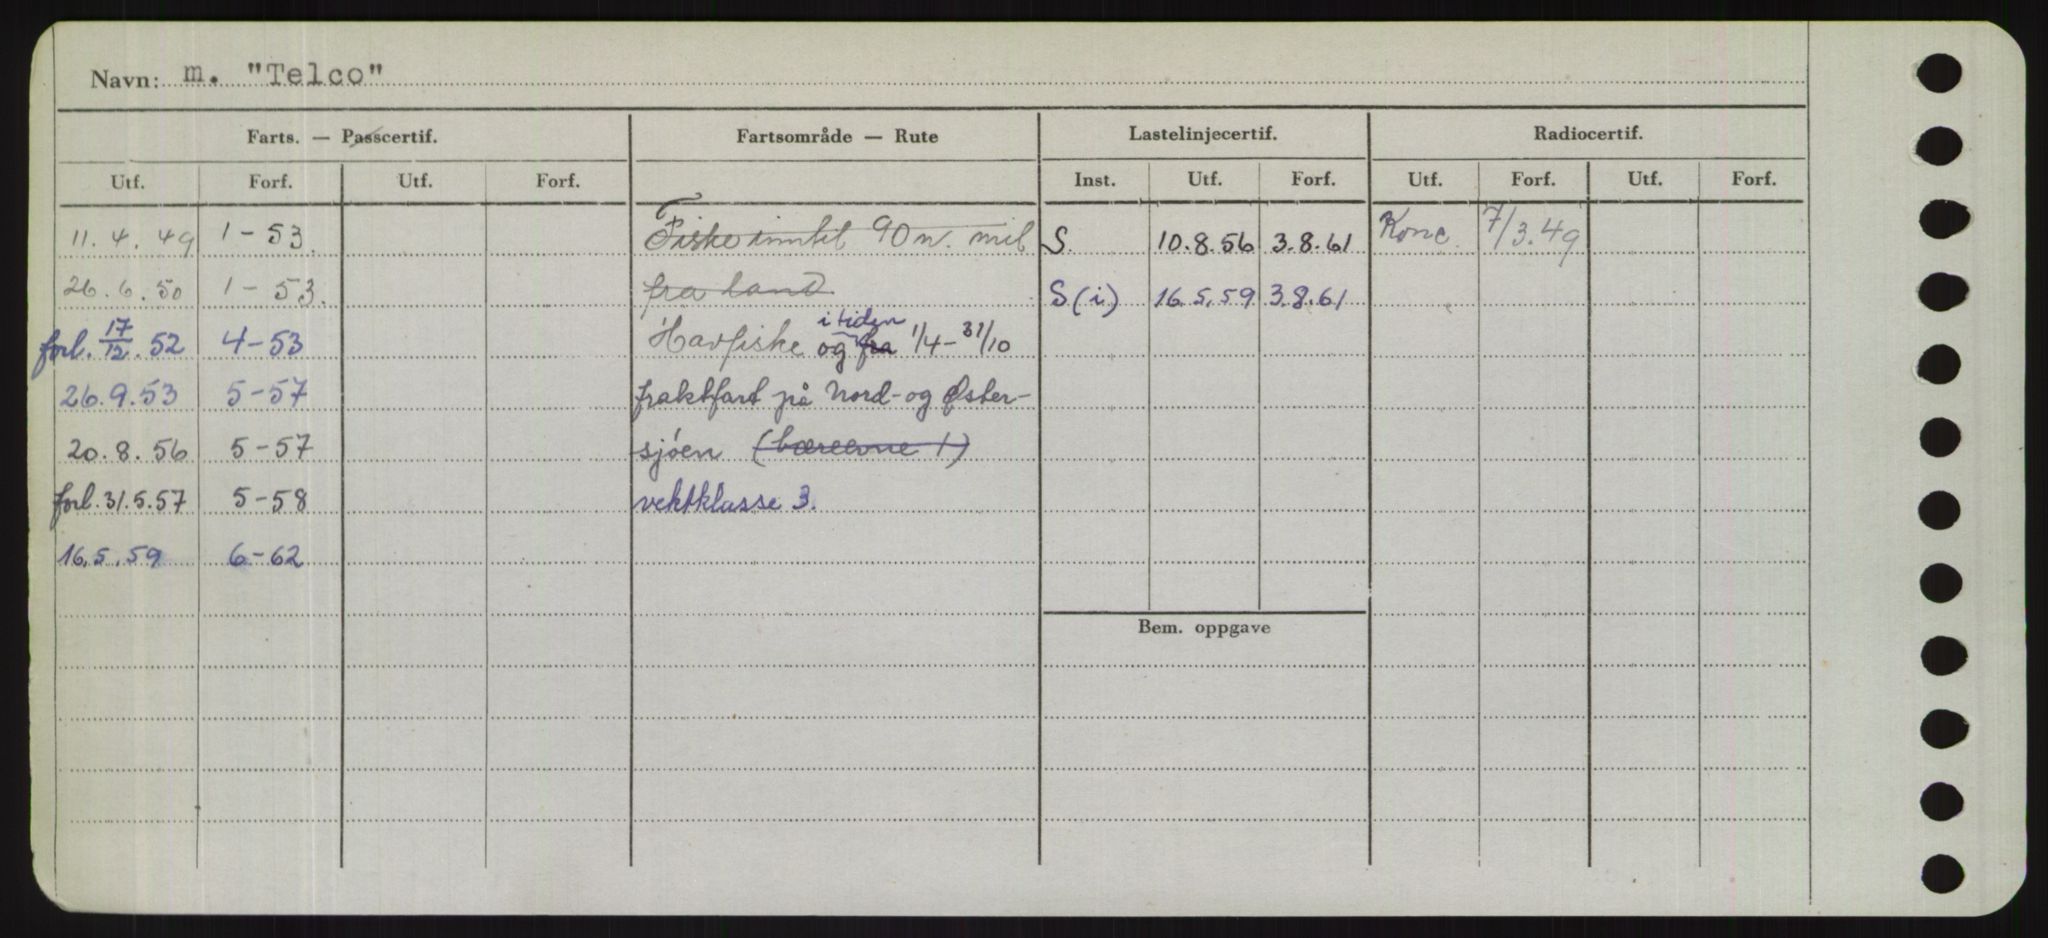 Navn: m. "Telco"
Farts. — Passcertif. Fartsområde — Rute Lastelinjecertif. Radiocertif.
Utf. Forf. Utf. Forf. Inst. Utf. Forf. Utf. Forf. Utf. Forf.
11.4.49 1-53. Fiske inntil 90 n. mil S. 10.8.56 3.8.61 Konc. 7/3.49
26.6.50 1-53. fra land S(i) 16.5.59 3.8.61
i tiden
forl. 17/12.52 4-53 Havfiske og fra 1/4-31/10
26.9.53 5-57 fraktfart på Nord- og Øster-
20.8.56 5-57 sjøen (bæreevne 1)
forl. 31.5.57 5-58 vektklasse 3.
16.5.59 6-62
Bem. oppgave